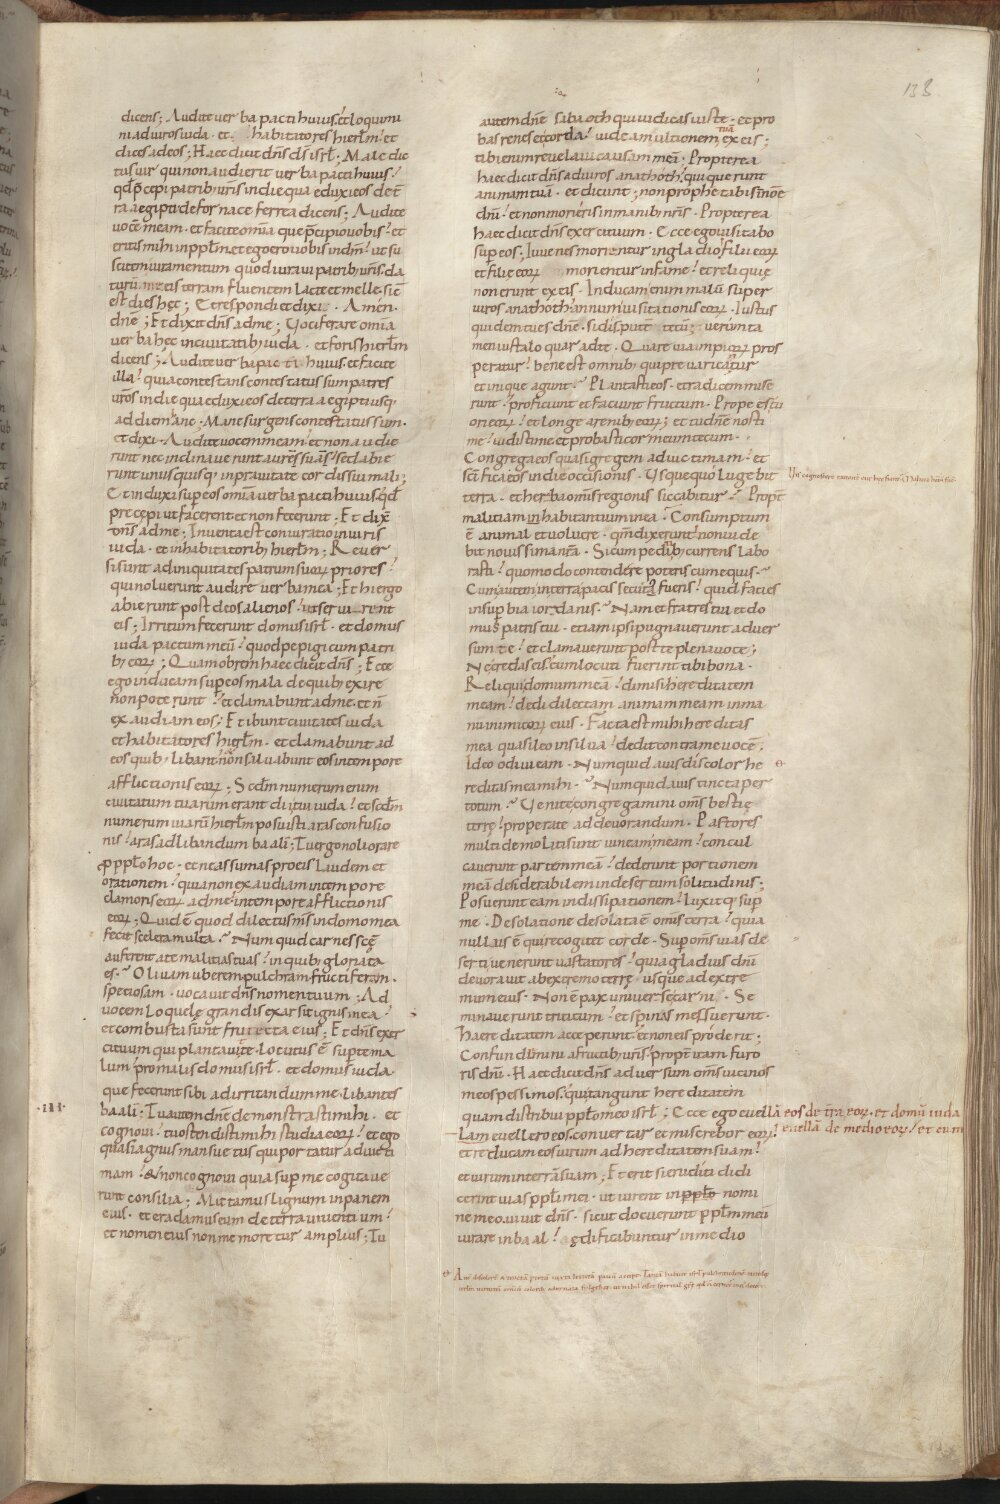 138
dicens; Audite uerba pacti huius. et loquimi
ni ad uiros iuda. et habitatores hierlm̅. et
dices ad eos; Haec dicit dn̅s ds̅ isrl̅; Male dic
tus uir qui non audierit uerba pacti huius.
qd̅ p̅cepi patrib; ur̅is in die qua eduxi eos de t̅
ra aegipti de fornace ferrea dicens; Audite
uoce̅ meam. et facite om̅ia que p̅cipio uobis. et
eritis mihi in ppl̅m. et ego ero uobis in dm̅. ut su
scitem iuramentum quod iuraui patrib; ur̅is. da
turu̅ me eis terram fluentem lacte et melle. sic̅
est dies hęc; Et respondi et dixi. Amen.
dn̅e; Et dixit dn̅s ad me; Uociferare om̅ia
uerba hęc in ciuitatib; iuda. et foris hierl̅m
dicens; Audite uerba pacti huius. et facite
illa. quia contestans contestatus sum patres
ur̅os in die qua eduxi eos de terra aegipti usq;
ad diem hanc. Mane surgens contestatus sum.
et dixi. Audite uocem meam. et non audie
runt nec inclinauerunt aure̅s sua̅s. sed abie
runt unusquisq; in prauitate cordis sui mali;
Et induxi sup eos om̅ia uerba pacti huius. qd̅
precepi ut facerent et non fecerunt; Et dix̅
dn̅s ad me; Inuenta est coniuratio in uiris
iuda. et in habitatorib; hierl̅m; Reuer
si sunt ad iniquitates patrum suor̅ priores.
qui noluerunt audire uerba mea; Et hi ergo
abierunt post deos alienos. ut seruirent
eis; Irritum fecerunt domus isrl̅. et domus
iuda pactum meu̅. quod pepigi cum patri
b; eor̅; Quam obrem haec dicit dn̅s; Ecce
ego inducam sup eos mala de quib; exire
non poterunt. et clamabunt ad me. et n̅
exaudiam eos; Et ibunt ciuitates iuda
et habitatores hierl̅m. et clamabunt ad
eos quib; libant. non saluabunt eos in tempore
afflictionis eor̅; Scd̅m numerum enim
ciuitatum tuarum erant dii tui iuda. et scd̅m
numerum uiaru̅ hierl̅m posuisti aras confusio
nis. aras ad libandum baali; Tu ergo noli orare
p ppl̅o hoc. et ne assumas pro eis laudem et
orationem. quia non exaudiam in tempore
clamoris eor̅ ad me. in tempore afflictionis
eor̅; Quid e̅ quod dilectus m̅s in domo mea
fecit scelera multa. Numquid carnes sc̅ę
auferent a te malitias tuas. in quib; gloriata
es. Oliuam uberem pulchram fructiferam.
speciosam. uocauit dn̅s nomen tuum; Ad
uocem loquelę grandis exarsit ignis in ea.
et combusta sunt fruteta eius; Et dn̅s exer
cituum qui plantauit te. locutus e̅ sup te ma
lum. pro malis domus isrl̅. et domus iuda.
que fecerunt sibi ad irritandum me. libantes
baali; Tu autem dn̅e demonstrasti mihi. et
cognoui. tu ostendisti mihi studia eor̅. et ego
quasi agnus mansuetus qui portatur ad uicti
mam. et non cognoui quia sup me cogitaue
runt consilia; Mittamus lignum in panem
eius. et eradamus eum de terra uiuentium.
et nomen eius non memoretur amplius; Tu
·III·
autem dn̅e sabaoth qui iudicas iuste. et pro
bas renes et corda. uideam ultionem tuā ex eis;
tibi enim reuelaui causam mea̅. Propterea
haec dicit dn̅s ad uiros anathoth. qui querunt
animam tua̅. et dicunt; non prophetabis in no̅e
dn̅i. et non morieris in manib; nr̅is. Propterea
haec dicit dn̅s exercituum. Ecce ego uisitabo
sup eos; Iuuenes morientur in gladio. filii eor̅
et filie eor̅ morientur in fame. et reliquię
non erunt ex eis. Inducam enim malu̅ super
uiros anathoth. annum uisitationis eor̅. Iustus
quidem tu es dn̅e. si disputem tecu̅; uerumta
men iusta loquar ad te. Quare uia impior̅ pros
peratur. bene est omnib; qui preuaricantur
et inique agunt. Plantasti eos. et radicem mise
runt. proficiunt et faciunt fructum. Prope es tu
ori eor̅. et longe a renib; eor̅; et tu dn̅e nosti
me. uidisti me et probasti cor meum tecum.
Congrega eos quasi gregem ad uictimam. et
sc̅ifica eos in die occisionis. Usquequo lugebit
terra. et herba om̅is regionis siccabitur. Propt̅
malitiam inhabitantium in ea. Consumptum
e̅ animal et uolucre. qm̅ dixerunt non uide
bit nouissima nr̅a. Si cum peditib; currens labo
rasti. quomodo contendere poteris cum equis.
Cum autem in terra pacis secura fueris. quid facies
in supbia iordanis. Nam et fratres tui et do
mus patris tui. etiam ipsi pugnauerunt aduer
sum te. et clamauerunt post te plena uoce;
Ne credas eis cum locuti fuerint tibi bona.
Reliqui domum mea̅. dimisi hereditatem
meam. dedi dilectam animam meam in ma
nu inimicor̅ eius. Facta est mihi hereditas
mea quasi leo in silua. dedit contra me uoce̅.
Ideo odiui eam. Numquid auis discolor he
reditas mea mihi. Numquid auis tincta per
totum. Uenite congregamini om̅s bestię
terrę. properate ad deuorandum. Pastores
multi demoliti sunt uineam meam. concul
cauerunt partem mea̅. dederunt portionem
mea̅ desiderabilem in desertum solitudinis;
Posuerunt eam in dissipationem. luxitq; sup
me. Desolatione desolata e̅ omis terra. quia
nullus e̅ qui recogitet corde. Sup om̅s uias de
serti uenerunt uastatores. quia gladius dn̅i
deuorauit ab extremo terrę. usque ad extre
mum eius. Non e̅ pax uniuersę carni. Se
minauerunt triticum. et spinas messuerunt.
Haereditatem acceperunt. et non eis proderit;
Confundimini a fructib; ur̅is. propt̅ iram furo
ris dn̅i. Haec dicit dn̅s aduersum om̅s uicinos
meos pessimos. qui tangunt hereditatem
quam distribui ppl̅o meo isrl̅; Ecce ego euella̅ eos de t̅ra eor̅. et domu̅ iuda
euella̅ de medio eor̅. et cum
lam euellero eos. conuertar et miserebor eor̅.
et reducam eos uirum ad hereditatem sua̅.
et uirum in terra̅ suam; Et erit si eruditi didi
cerint uias ppl̅i mei. ut iurent in ppl̅o nomi
ne meo. uiuit dn̅s. sicut docuerunt ppl̅m meu̅
iurare in baal. ędificabuntur in medio